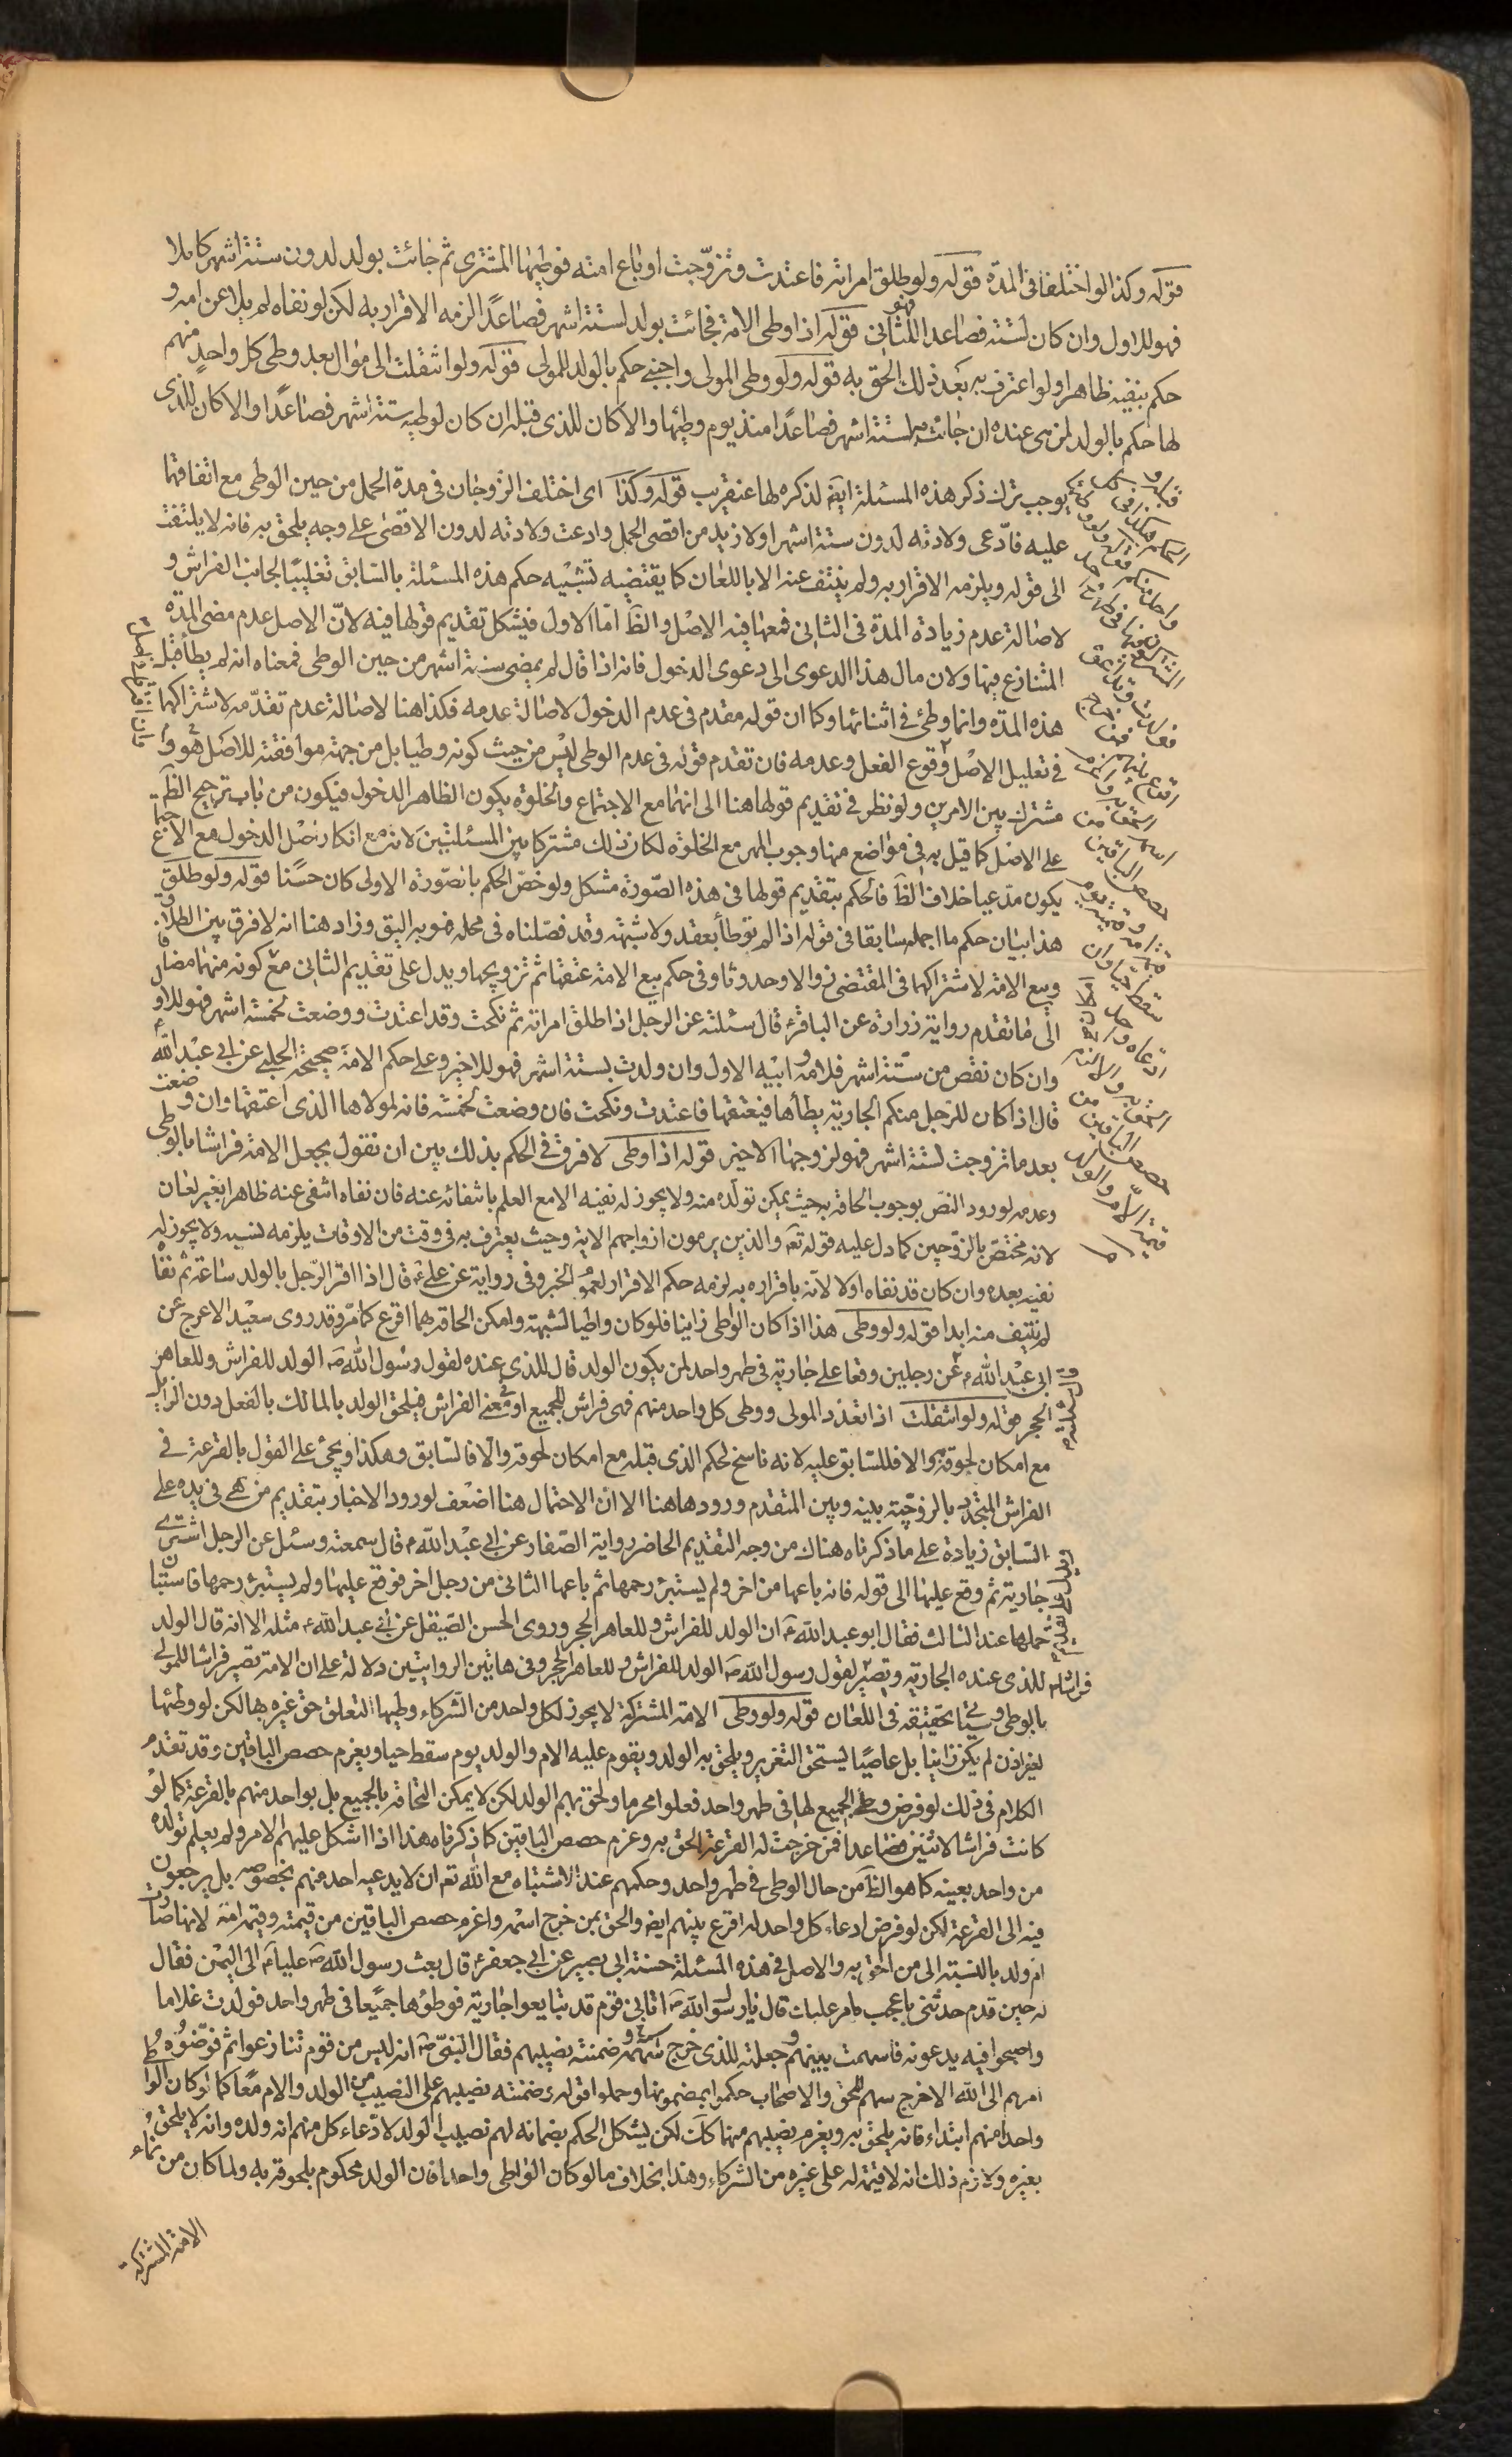 قوله وكذا لو اختلفا فى المدّة قوله ولو طلق امراته فاعتدت وتزوّجت او باع امته فوطيها المشترى ثم جائت بولد لدون ستة اشهر كاملا
فهو للاول وان كان لستة فصاعدا فهو للثانى قوله اذا وطى الامة فجائت بولد لستة اشهر فصاعدًا لزمه الاقرار به لكن لو نفاه لم يلاعن امه و
حكم بنفيه ظاهرا ولو اعترف به بعد ذلك الحق به قوله ولو وطى المولى واجنبى حكم بالولد للمولى قوله ولو انتقلت الى موال بعد وطى كل واحد منهم
لها حكم بالولد لمن هى عنده ان جائت به لستة اشهر فصاعدًا منذ يوم وطيها والا كان للذى قبله ان كان لوطيه ستة اشهر فصاعدًا والا كان للذى
يوجب ترك ذكر هذه المسئلة ايضا لذكره لها عنقريب قوله وكذا اى اختلف الزوجان فى مدة الحمل من حين الوطى مع اتفاقهما
عليه فادّعى ولادته لدون ستة اشهر او لازيد من اقصى الحمل وادعت ولادته لدون الاقصى على وجه يلحق به فانه لا يلتفت
الى قوله ويلزمه الاقرار به ولم ينتف عنه الا باللعان كما يقتضيه تشبيه حكم هذه المسئلة بالسابق تغليبًا لجانب الفراش و
لاصالة عدم زيادة المدة فى الثانى فمعها فيه الاصل والظ اما الاول فيشكل تقديم قولها فيه لانّ الاصل عدم مضى المدة
المتنازع فيها ولان مال هذا الدعوى الى دعوى الدخول فانه اذا قال لم يمض ستة اشهر من حين الوطى فمعناه انه لم يطأ قبل
هذه المدّة وانما وطئ فى اثنائها وكما ان قوله مقدم فى عدم الدخول لاصالة عدمه فكذا هنا لاصالة عدم تقدّمه لاشتراكهما
فى تعليل الاصل وقوع الفعل وعدمه فان تقدم قوله فى عدم الوطى ليس من حيث كونه وطيا بل من جهة موافقته للاصل وهو
مشترك بين الامرين ولو نظر فى تقديم قولها هنا الى انهما مع الاجتماع والخلوة يكون الظاهر الدخول فيكون من باب ترجيح الظ
على الاصل كما قيل به فى مواضع منها وجوب المهر مع الخلوة لكان ذلك مشتركا بين المسئلتين لانه مع انكار اصل الدخول مع الاجتماع
يكون مدّعيا خلاف الظ فالحكم بتقديم قولها فى هذه الصّورة مشكل ولو خصّ الحكم بالصّورة الاولى كان حسنًا قوله ولو طلّق
هذا بيان حكم ما اجمله سابقا فى قوله اذا لم توطأ بعقد ولا شبهة وقد فصّلناه فى محله فهو به اليق وزاد هنا انه لا فرق بين الطلاق
وبيع الامة لاشتراكهما فى المقتضى زوالا وحدوثا وفى حكم بيع الامة عتقها ثم تزويجها ويدل على تقديم الثانى مع كونه منهما مضافا
الى ما تقدم رواية زرارة عن الباقر قال سئلته عن الرّجل اذا طلق امراته ثم نكحت وقد اعتدت ووضعت لخمسة اشهر فهو للاول
وان كان نقص من ستة اشهر فلامه وابيه الاول وان ولدت لستة اشهر فهو للاخير وعلى حكم الامة صحيحة الحلبى عن ابى عبد الله
قال اذا كان للرّجل منكم الجارية يطأها فيعتقها فاعتدت ونكحت فان وضعت لخمسة فانه لمولاها الذى اعتقها وان وضعت
بعد ما تزوجت لستة اشهر فهو لزوجها الاخير قوله اذا وطى لا فرق فى الحكم بذلك بين ان نقول بجعل الامة فراشا بالوطى
وعدمه لورود النصّ بوجوب الحاقه به حيث يمكن تولّده منه ولا يجوز له نفيه الا مع العلم بانتفائه عنه فان نفاه انتفى عنه ظاهرا بغير لعان
لانه مختصّ بالزّوجين كما دل عليه قوله تع والذين يرمون ازواجهم الاية وحيث يعترف به فى وقت من الاوقات يلزمه نسبه ولا يجوز له
نفيه بعده وان كان قد نفاه اولا لانه باقراره به لزمه حكم الاقرار لعموم الخبر وفى رواية عن على ع قال اذا اقر الرّجل بالولد ساعة ثم نفاه
لم ينتف منه ابدا قوله ولو وطى هذا اذا كان الواطى زانيا فلو كان واطيا لشبهة وامكن الحاقه بهما اقرع كما مرّ وقد روى سعيد الاعرج عن
ابى عبد الله ع عن رجلين وقعا على جارية فى طهر واحد لمن يكون الولد قال للذى عنده لقول رسول الله ص الولد للفراش وللعاهر
الحجر قوله ولو انتقلت اذا تعدّد المولى ووطى كل واحد منهم فهى فراش للجميع او فى معنى الفراش فيلحق الولد بالمالك بالفعل دون الزايل
مع امكان لحوقه به والا فللسابق عليه لانه ناسخ لحكم الذى قبله مع امكان لحوقه والا فالسابق وهكذا ويجئ على القول بالقرعة فى
الفراش المتجدد بالزوجيّة بينه وبين المتقدم ورودها هنا الا ان الاحتمال هنا اضعف لورود الاخبار بتقديم من هى فى يده على
السّابق زيادة على ما ذكرناه هناك من وجه التقديم الحاضر رواية الصّفار عن ابى عبد الله ع قال سمعته وسئل عن الرجل اشترى
جارية ثم وقع عليها الى قوله فانه باعها من اخر ولم يستبرئ رحمها ثم باعها الثانى من رجل اخر فوقع عليها ولم يستبرئ رحمها فاستبان
حملها عند الثالث فقال ابو عبد الله ع ان الولد للفراش وللعاهر الحجر وروى الحسن الصّيقل عن ابى عبد الله ع مثله الا انه قال الولد
للذى عنده الجارية وتصبّر لقول رسول الله ص الولد للفراش وللعاهر الحجر وفى هاتين الروايتين دلالة على ان الامة تصير فراشا للمولى
بالوطى وسيئاتى تحقيقه فى اللعان قوله ولو وطى الامة المشتركة لا يجوز لكل واحد من الشّركاء وطيها لتعلق حق غيره بها لكن لو وطئها
بغير اذن لم يكن زانيا بل عاصيًا يستحق التعزير ويلحق به الولد ويقوم عليه الام والولد يوم سقط حيا ويغرم حصص الباقين وقد تقدم
الكلام فى ذلك لو فرض وطى الجميع لها فى طهر واحد فعلوا محرما ولحق بهم الولد لكن لا يمكن الحاقه بالجميع بل بواحد منهم بالقرعة كما لو
كانت فراشا لاثنين فصاعدا فمن خرجت له القرعة الحق به وغرم حصص الباقين كما ذكرناه هذا اذا اشكل عليهم الامر ولم يعلم تولده
من واحد بعينه كما هو الظ من حال الوطى فى طهر واحد وحكمهم عند الاشتباه مع الله تع ان لا يدعيه احد منهم بخصوصه بل يرجعون
فيه الى القرعة لكن لو فرض ادعاء كل واحد له اقرع بينهم ايض والحق بمن خرج اسمه واغرم حصص الباقين من قيمته وقيمة امه لانها صارت
ام ولد بالنسبة الى من الحق به والاصل فى هذه المسئلة حسنة ابى بصير عن ابى جعفر ع قال بعث رسول الله ص عليا ع الى اليمن فقال
له حين قدم حدثنى باعجب ما مر عليك قال يا رسول الله ص اتانى قوم قد تبايعوا جارية فوطؤها جميعا فى طهر واحد فولدت غلاما
واصبحوا فيه يدعونه فاسهمت بينهم وجعلته للذى خرج سهمه وضمنته نصيبهم فقال النبىّ ص انه ليس من قوم تنازعوا ثم فوّضوا
امرهم الى الله الا خرج سهم المحق والاصحاب حكموا بمضمونها وحملوا قوله وضمنته نصيبهم على النصيب من الولد والام معًا كما لو كان الواطى
واحدا منهم ابتداء فانه يلحق به ويغرم نصيبهم منها كلك لكن يشكل الحكم بضمانه لهم نصيب الولد لادّعاء كل منهم انه ولده وانه لا يلحق
بغيره ولازم ذلك انه لا قيمة له على غيره من الشركاء وهذا بخلاف ما لو كان الواطى واحدا فان الولد محكوم بلحوقه به ولما كان من نماء
الامة المشتركة